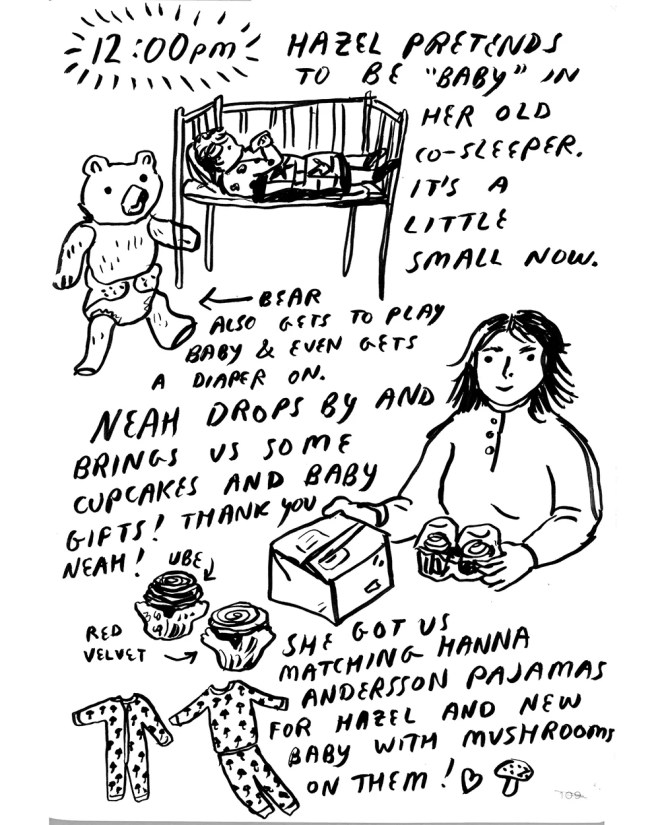 12:00pm
HAZEL PRETENDS
TO BE "BABY" IN
HER OLD
CO-SLEEPER.
IT'S A
LITTLE
SMALL NOW.
← BEAR
ALSO GETS TO PLAY
BABY & EVEN GETS
A DIAPER ON.
NEAH DROPS BY AND
BRINGS US SOME
CUPCAKES AND BABY
GIFTS! THANK YOU
NEAH!
UBE
RED
VELVET →
SHE GOT US
MATCHING HANNA
ANDERSSON PAJAMAS
FOR HAZEL AND NEW
BABY WITH MUSHROOMS
ON THEM!